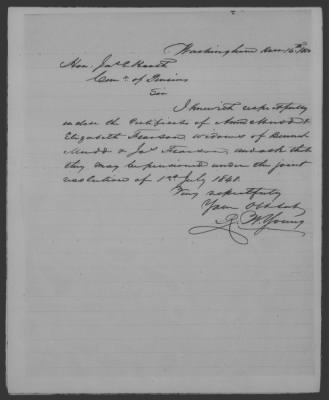 Washington
Hon. Jas. E. Heath
Comr. of Pensions
Sir
I herewith respectfully
enclose the Certificates of Ann Mudd &
Elizabeth Hearson widows of Bennet
Mudd & Jas. Hearson, and ask that
they may be pensioned under the joint
resolution of 1st July 1848.
Very respectfully
Your Obt Svt
R. W. Young